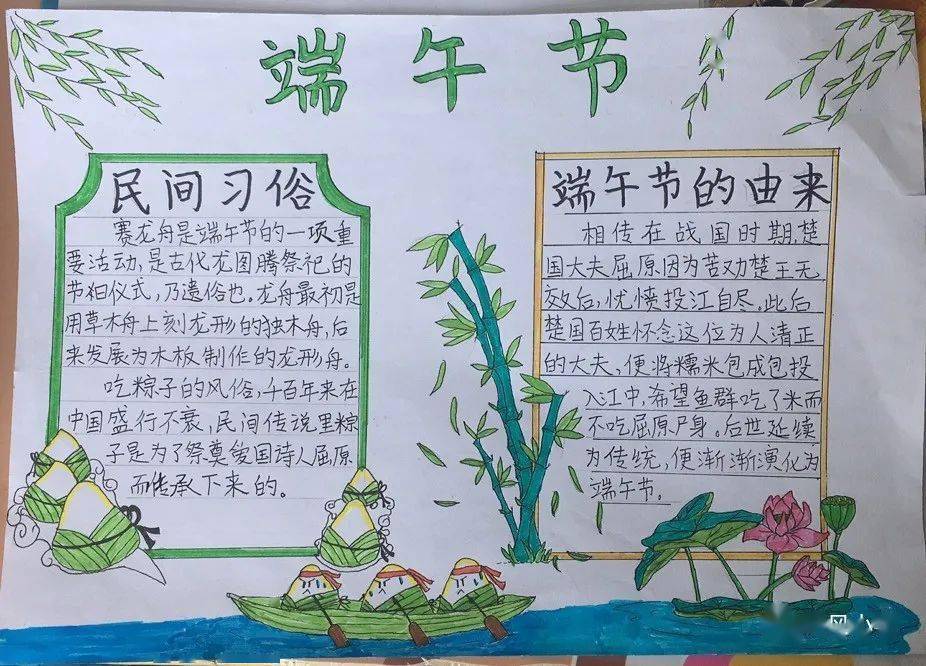 端午节
民间习俗
赛龙舟是端午节的一项重
要活动,是古代龙图腾祭祀的
节的仪式,乃遗俗也。龙舟最初是
用草木舟上刻龙形的独木舟,后
来发展为木板制作的龙形舟。
吃粽子的风俗,千百年来在
中国盛行不衰,民间传说里粽
子是为了祭奠爱国诗人屈原
而传承下来的。
端午节的由来
相传在战国时期,楚
国大夫屈原因为苦劝楚王无
效后,忧愤投江自尽。此后
楚国百姓怀念这位为人清正
的大夫,便将糯米包成包投
入江中,希望鱼群吃了米而
不吃屈原尸身。后世延续
为传统,便渐渐演化为
端午节。